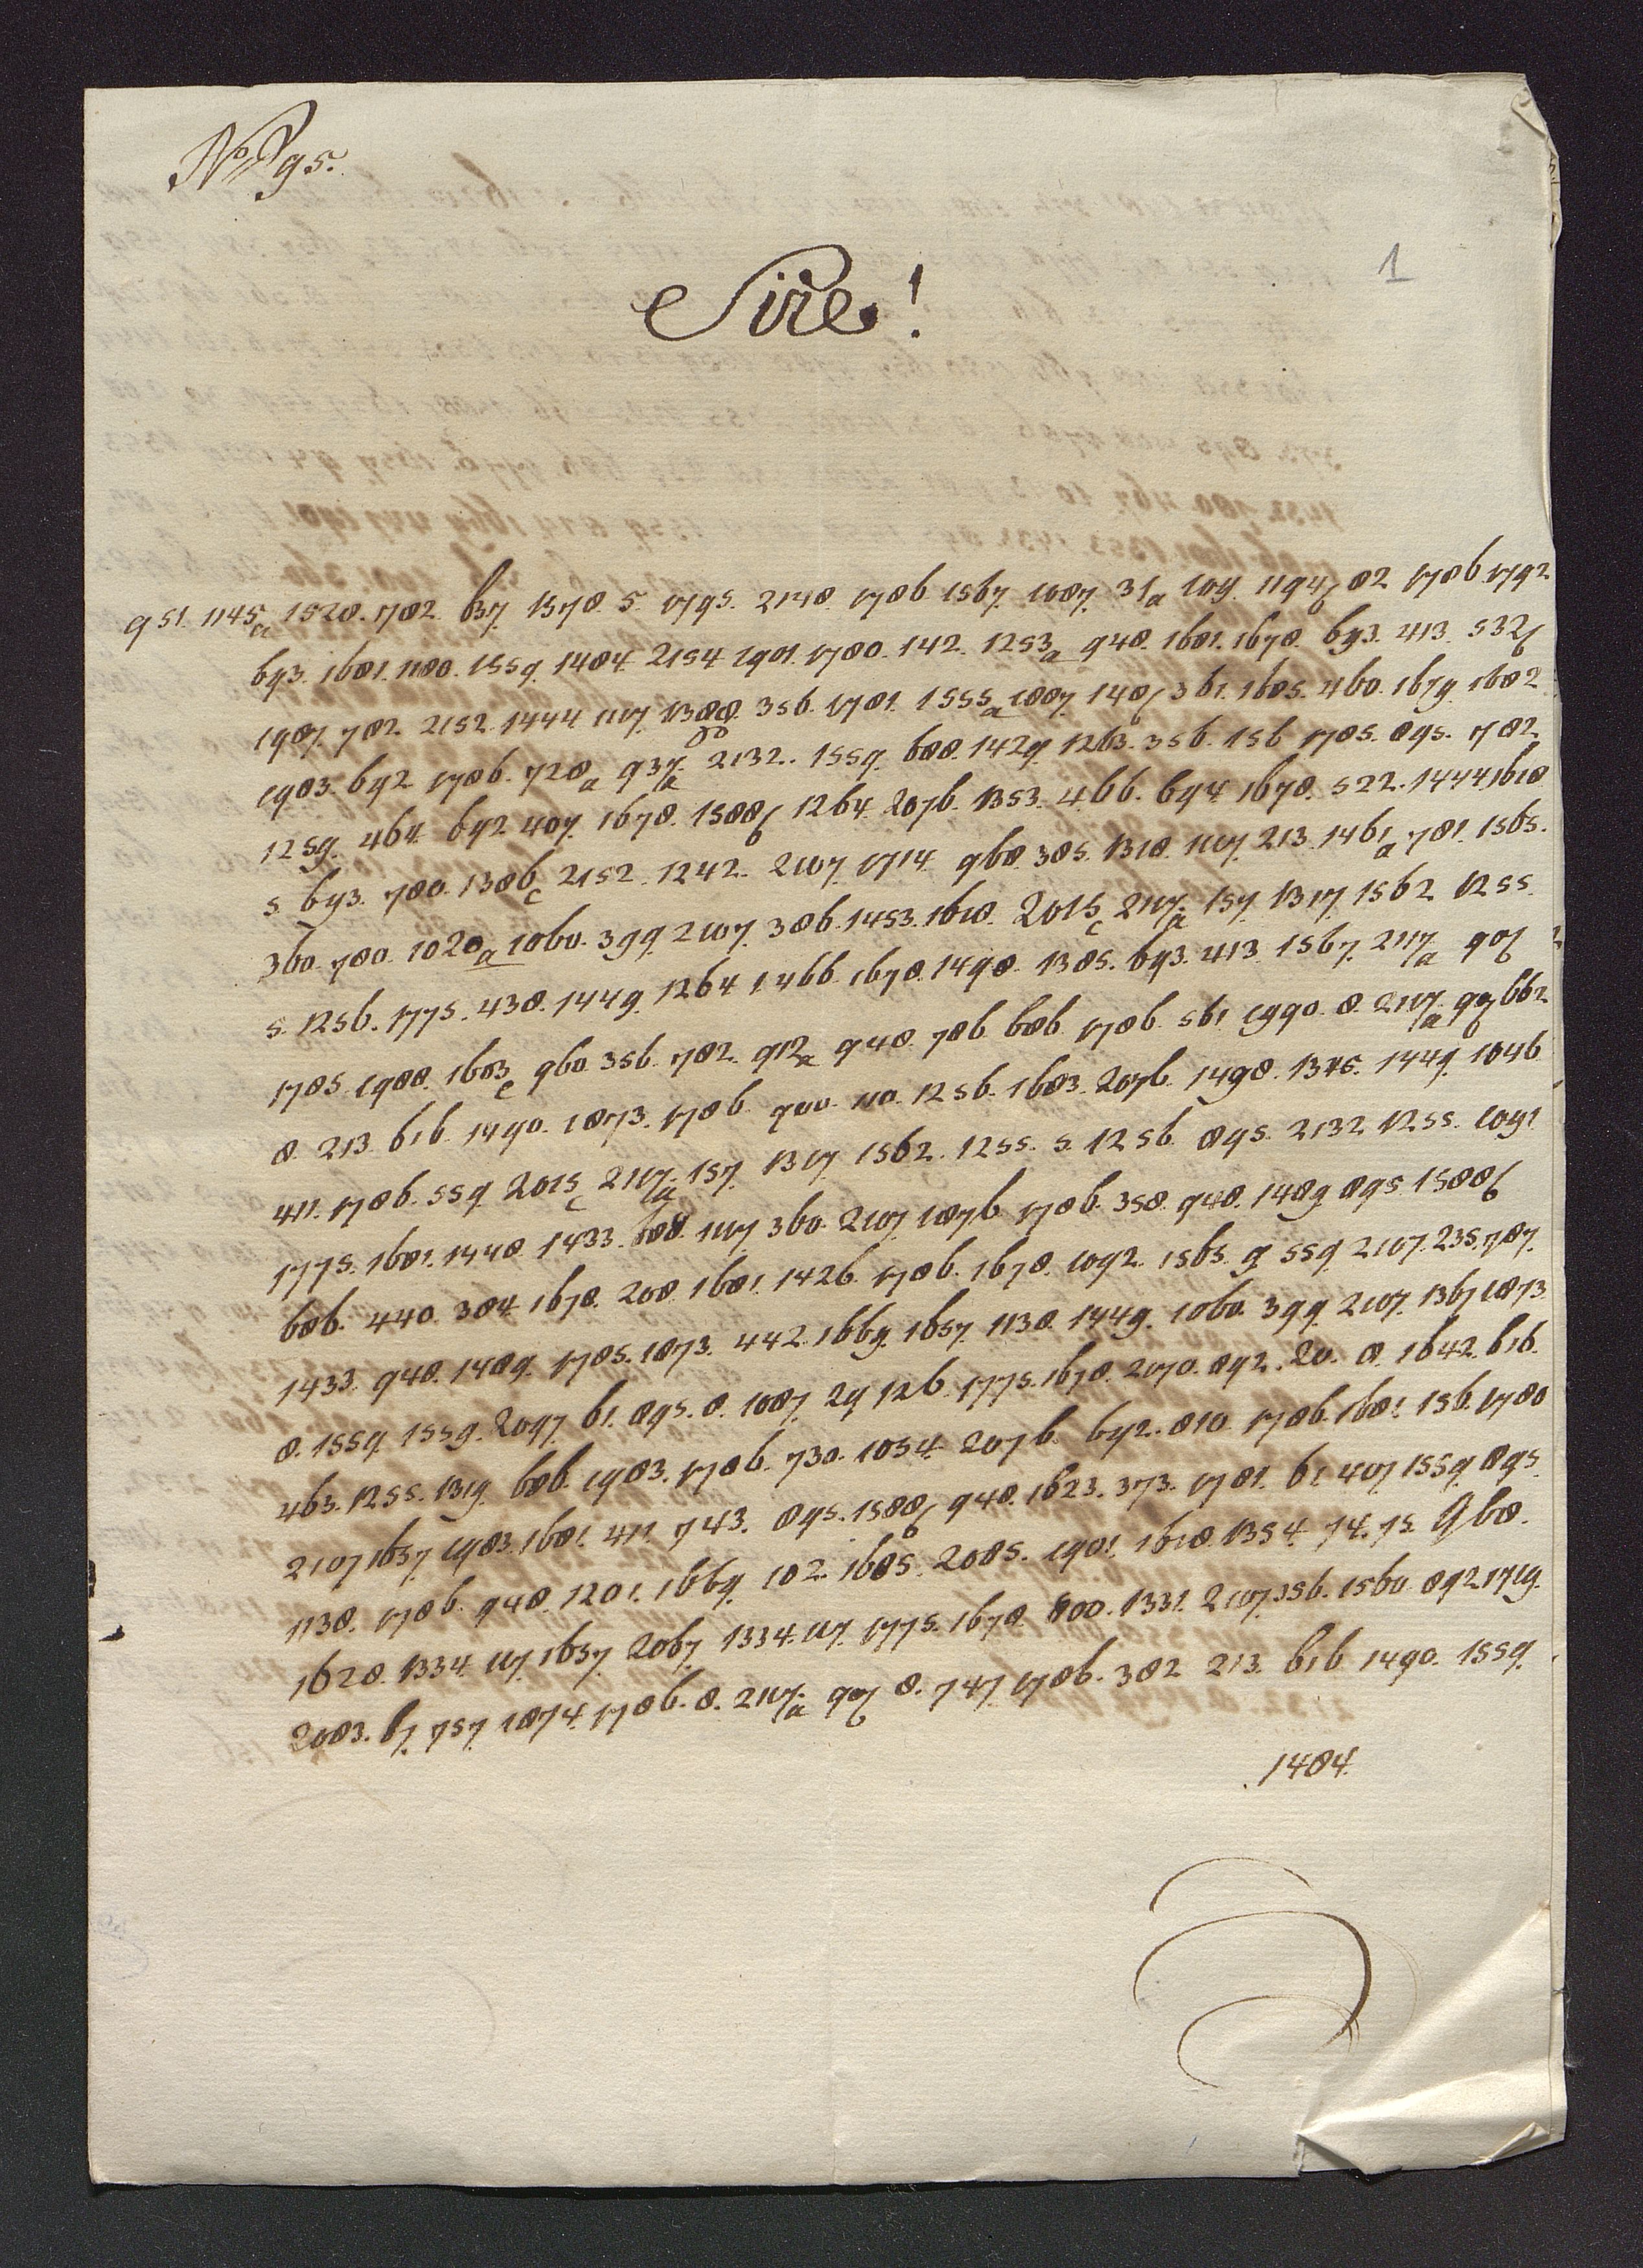 No 95.
1
Sire!
951. 1145a 1528. 782. 637. 1578. 5. 1795. 2148. 1786. 1567. 1087. 31a 109. 1194b 82 1786 1792
693. 1681. 1180. 1559. 1484. 2154 1901. 1780. 142. 1253a 948. 1681. 1678. 693. 413. 532b
1987. 782. 2152. 1444 1107 356. 1781. 1555a 1887. 148b 361. 1685. 460. 1679. 1682
1983. 692 1786. 728a 937a 2132. 1559. 688. 1429. 1263. 356. 156 1785. 895. 782
1259. 464. 692. 407. 1678. 1588b 1264. 2076. 1353. 466. 694. 1678. 522. 1444 1618
5. 693. 780. 1386c 2152. 1242. 2107. 1714. 968. 385. 1318. 1107. 213. 1461a 781. 1565.
360. 780. 1020a 1060. 399. 2107. 386. 1453. 1618. 2015c 2117a 157. 1317. 1562 1255.
5. 1256. 1775. 438. 1449. 1264 1466. 1678. 1498. 1385. 693. 413. 1567. 2117a 90b
1785. 1988. 1683c 960. 356. 782. 912a 948. 786. 686. 1786. 561. 1990. 8. 2117a 90b 662
8. 213. 616. 1490. 1873. 1786. 900. 110. 1256. 1683. 2076. 1498. 1449. 1046
411. 1786. 559. 2015c 2117a 157. 1317. 1562. 1255. 5. 1256. 895. 2132. 1255. 1091
1775. 1681. 1448. 1433. 1107 360. 2107. 1876. 1786. 358. 948. 1489. 895. 1588b
686. 440. 384. 1678. 208. 1681. 1426. 1786. 1678. 1092. 1565. 9 559. 2107. 235. 787.
1433. 948. 1489. 1785. 1873. 442. 1669. 1657. 1138. 1449. 1060. 399. 2107. 1367 1873
8. 1559. 1559. 2097. 61. 895. 8. 1087. 29 126. 1775. 1678. 2070. 892. 20. 8. 1642. 616.
463. 1255. 1319. 686. 1983. 1786. 730. 1054. 2076. 692. 810. 1786. 1681. 156. 1780
2107 1657 1983. 1681. 411. 743. 895. 1588b 948. 1623. 373. 1781. 61. 407 1559 895.
1138. 1786. 948. 1201. 1669. 102. 1685. 2085. 1901. 1618. 1354. 74. 75. 968.
1628. 1334. 117. 1657. 2067. 1334. 117. 1775. 1678. 800. 1331. 2107. 356. 1560. 892. 1719.
2083. 67. 757. 1874. 1786. 8. 2117a 90b 8. 747. 1786. 382. 213. 616. 1490. 1559.
1484.